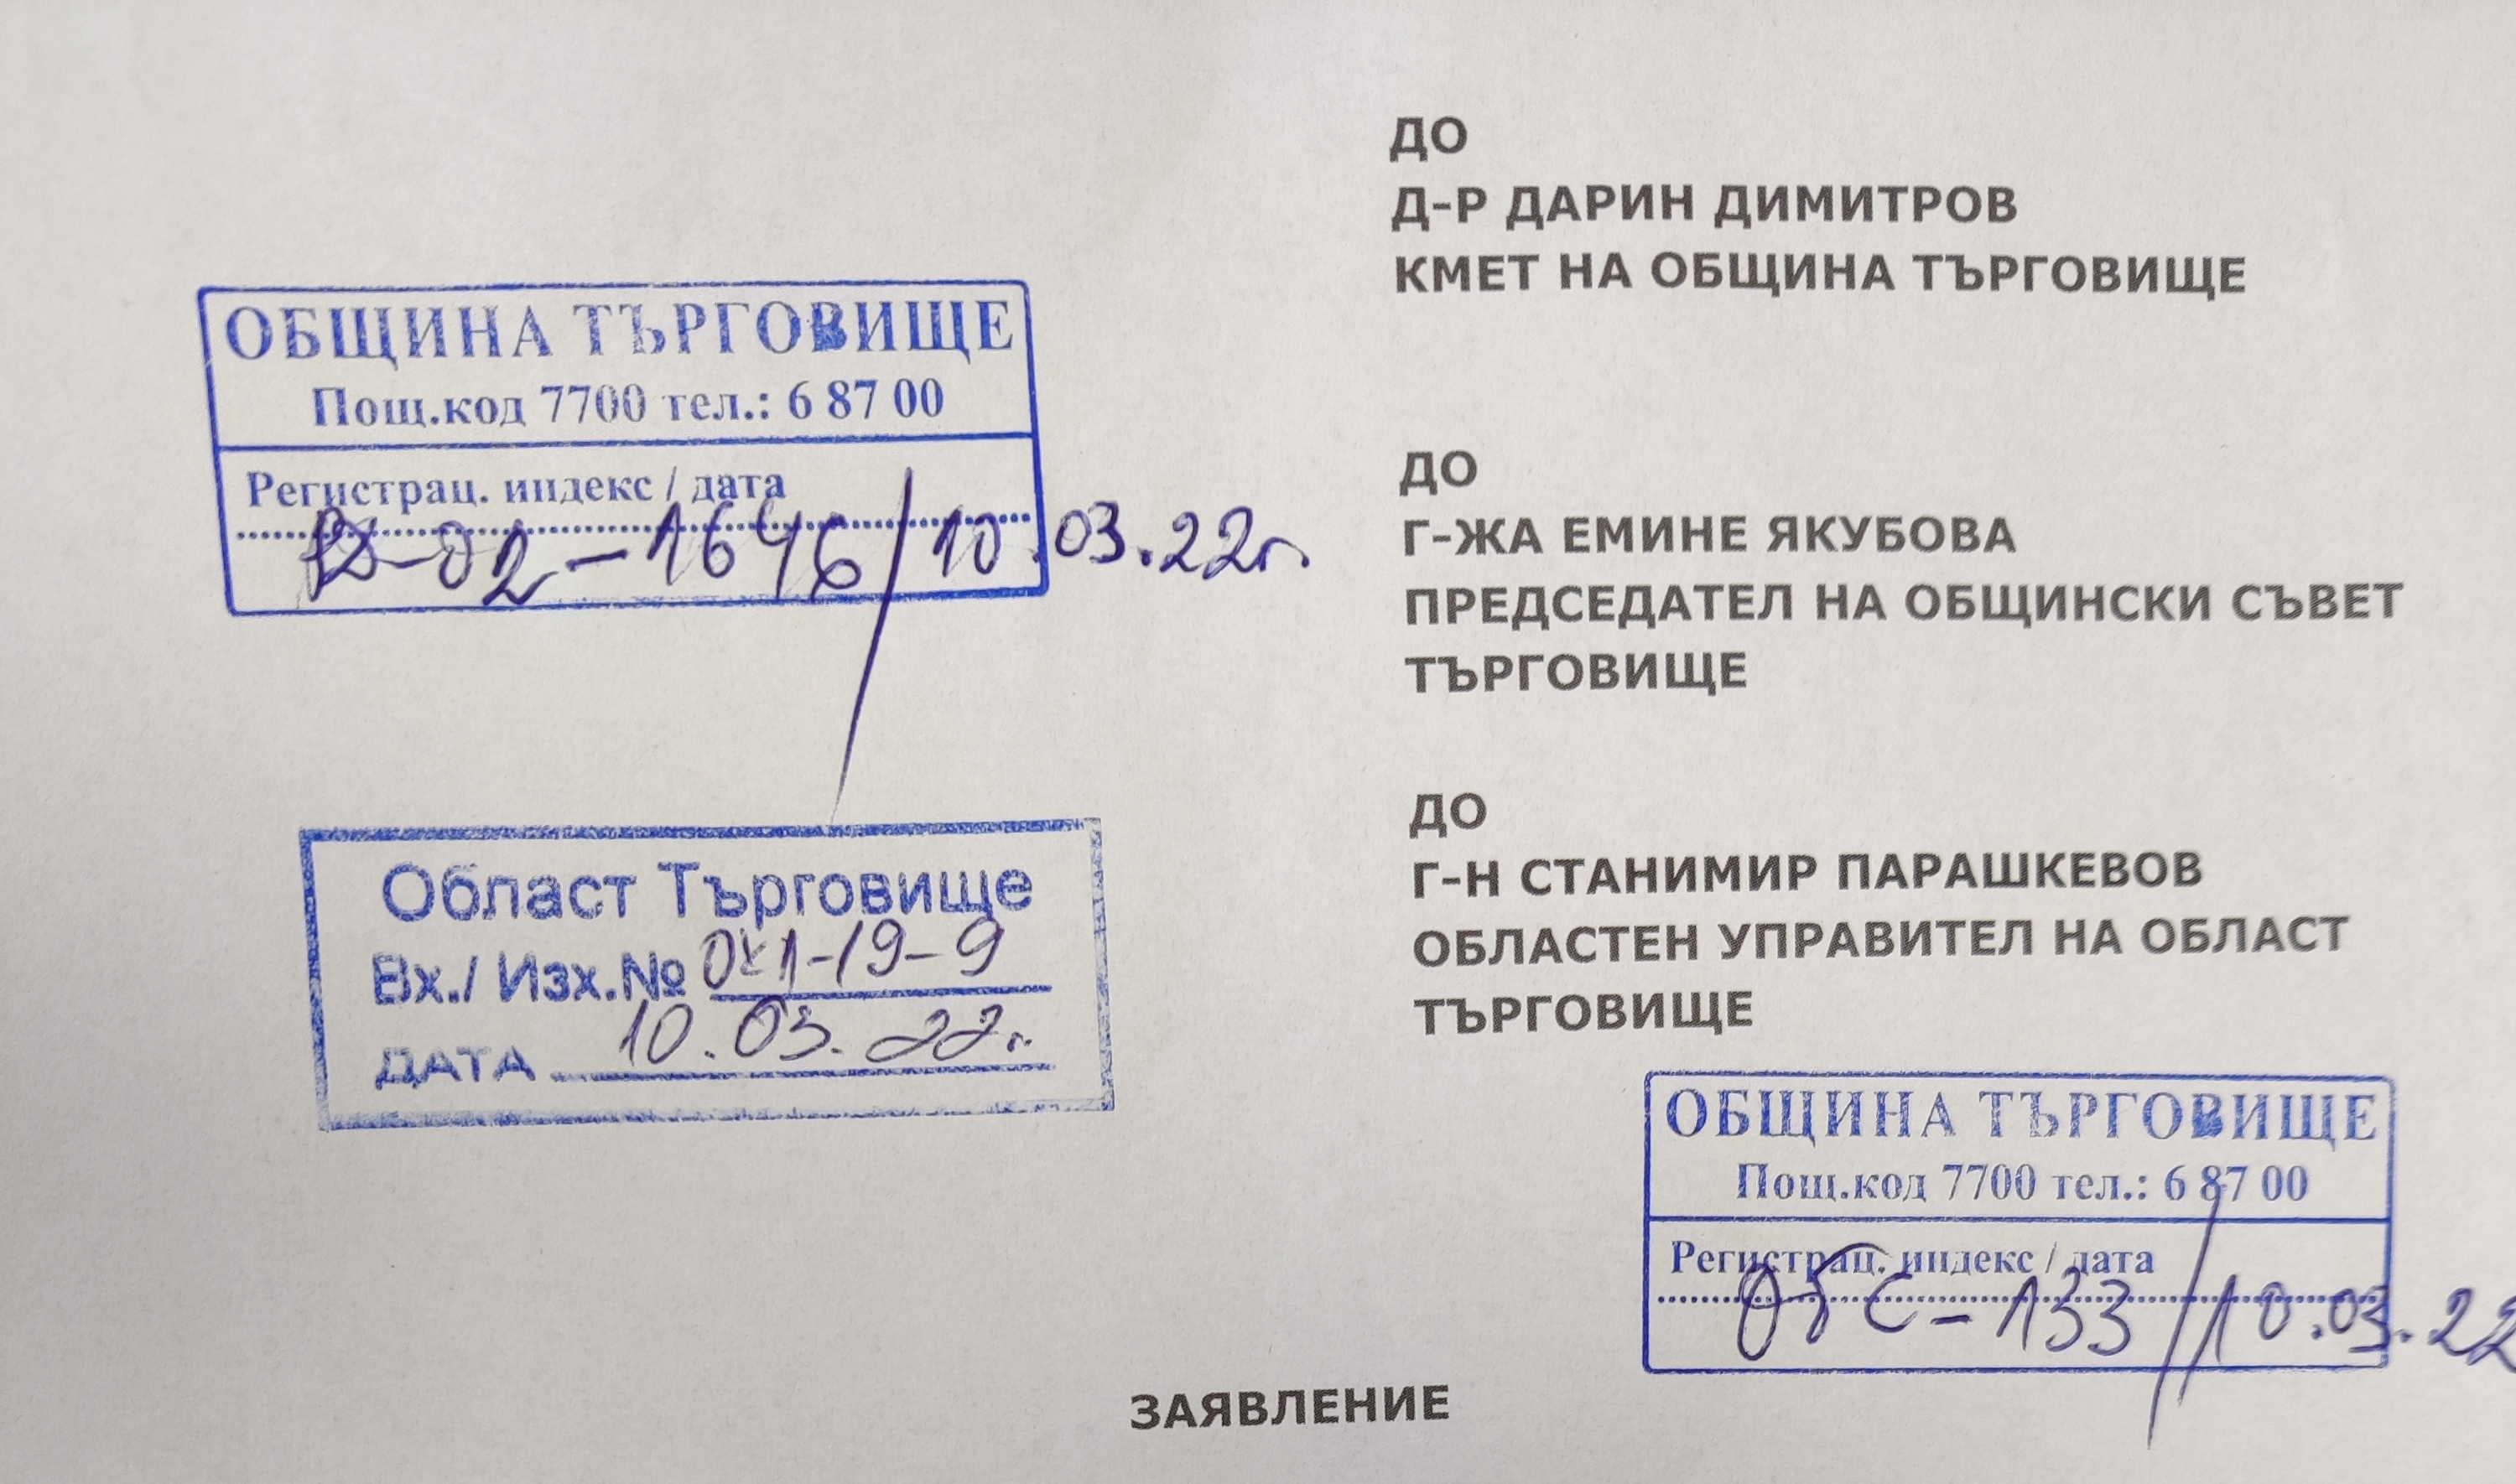 ДО
Д-Р ДАРИН ДИМИТРОВ
КМЕТ НА ОБЩИНА ТЪРГОВИЩЕ
ОБЩИНА ТЪРГОВИЩЕ
Пощ.код 7700 тел.: 6 87 00
Регистрац. индекс / дата
-02-1646/10.03.22г.
ДО
Г-ЖА ЕМИНЕ ЯКУБОВА
ПРЕДСЕДАТЕЛ НА ОБЩИНСКИ СЪВЕТ
ТЪРГОВИЩЕ
ДО
Г-Н СТАНИМИР ПАРАШКЕВОВ
ОБЛАСТЕН УПРАВИТЕЛ НА ОБЛАСТ
ТЪРГОВИЩЕ
Област Търговище
Вх./ Изх.№ -19-9
ДАТА 10.03.22г.
ОБЩИНА ТЪРГОВИЩЕ
Пощ.код 7700 тел.: 6 87 00
Регистрац. индекс / дата
ОбС-133/10.03.22
ЗАЯВЛЕНИЕ